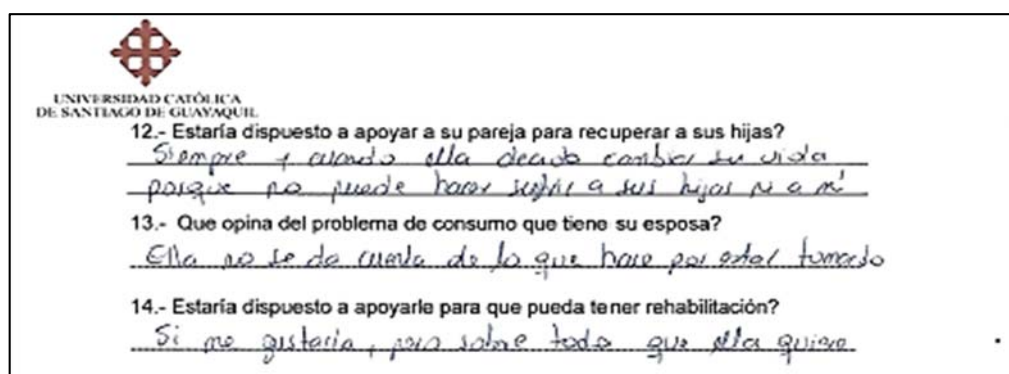 UNIVERSIDAD CATÓLICA
DE SANTIAGO DE GUAYAQUIL
12.- Estaría dispuesto a apoyar a su pareja para recuperar a sus hijas?
Siempre y cuando ella decida cambiar su vida
porque no puede hacer sufrir a sus hijas ni a mí
13.- Que opina del problema de consumo que tiene su esposa?
Ella no se da cuenta de lo que hace por estar tomando
14.- Estaría dispuesto a apoyarle para que pueda tener rehabilitación?
Si me gustaria, pero sobre todo que ella quiera